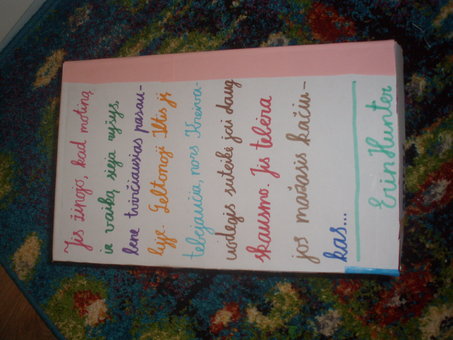 Jis žinojo, kad motiną
ir vaiką sieja ryšys,
bene tvirčiausias pasau-
lyje. Geltonoji Iltis jį
tebejaučia, nors
uodegis suteikė jai daug
skausmo. Jis tebėra
jos mažasis kačiu-
kas...
Erin Hunter